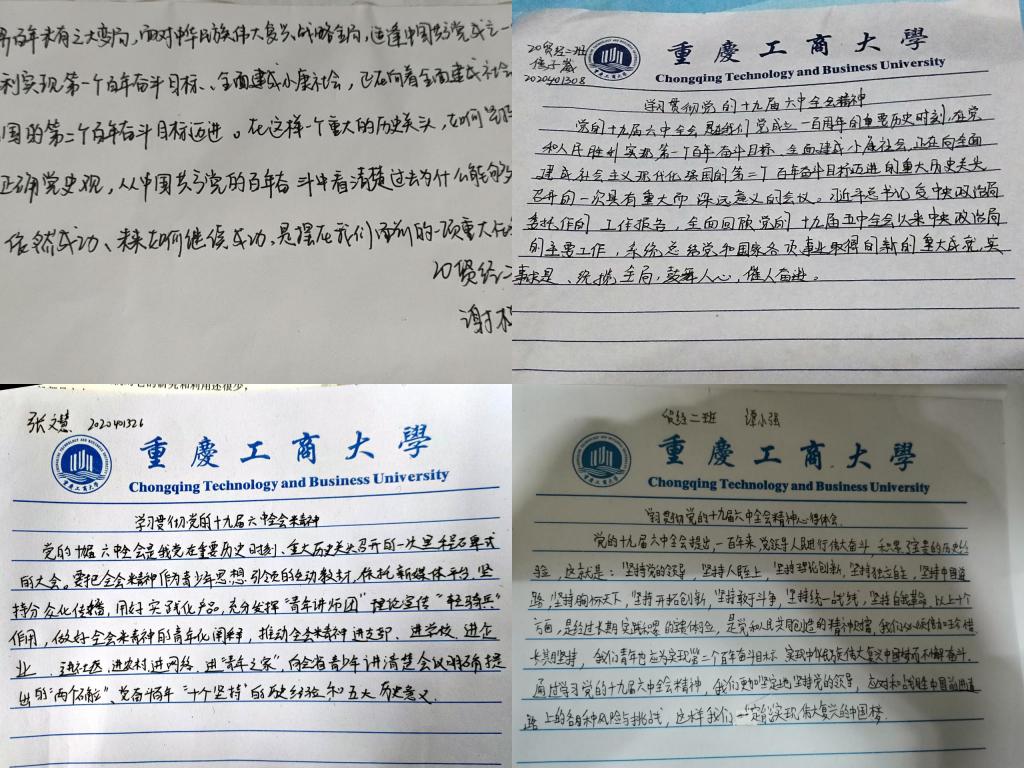 百年未有之大变局，面对中华民族伟大复兴战略全局，适逢中国共产党成立一
利实现第一个百年奋斗目标、全面建成小康社会，正在向着全面建成社会
国的第二个百年奋斗目标迈进。在这样一个重大的历史关头，如何
正确党史观，从中国共产党的百年奋斗中看清楚过去为什么能够
依然成功、未来如何继续成功、是摆在我们面前的一项重大
20贸经二
谢
20贸经二班
2020401308
重慶工商大學
Chongqing Technology and Business University
学习贯彻党的十九届六中全会精神
党的十九届六中全会是我们党成立一百周年的重要历史时刻，在党
和人民胜利实现第一个百年奋斗目标、全面建成小康社会，正在向全面
建成社会主义现代化强国的第二个百年奋斗目标迈进的重大历史关头
召开的一次具有重大而深远意义的会议。习近平总书记受中央政治局
委托作的工作报告，全面回顾党的十九届五中全会以来中央政治局
的主要工作，系统总结党和国家各项事业取得的新的重大成就，实
事求是、统揽全局，鼓舞人心，催人奋进。
张文慧 2020401326
重慶工商大學
Chongqing Technology and Business University
学习贯彻党的十九届六中全会精神
党的十九届六中全会是我党在重要历史时刻、重大历史关头召开的一次里程碑式
的大会。要把全会精神作为青少年思想引领的生动教材，依托新媒体平台，坚
持分众化传播，用好实践化产品，充分发挥“青年讲师团”理论宣传“轻骑兵”
作用，做好全会精神的青年化阐释，推动全会精神进支部、进学校、进企
业、进社区、进农村、进网络、进“青年之家”，向全省青少年讲清楚会议明确提
出的“两个确立”、党百年“十个坚持”的历史经验和五大历史意义。
贸经二班 谭小强
重慶工商大學
Chongqing Technology and Business University
学习贯彻党的十九届六中全会精神心得体会
党的十九届六中全会提出，一百年来，党领导人民进行伟大奋斗，积累了宝贵的历史经
验，这就是：坚持党的领导，坚持人民至上，坚持理论创新，坚持独立自主，坚持中国道
路，坚持胸怀天下，坚持开拓创新，坚持敢于斗争，坚持统一战线，坚持自我革命，以上十个
方面，是经过长期实践积累的宝贵经验，是党和人民共同创造的精神财富，我们必须倍加珍惜、
长期坚持，我们青年也应为实现第二个百年奋斗目标、实现中华民族伟大复兴中国梦而不懈奋斗。
通过学习党的十九届六中全会精神，我们更加坚定地坚持党的领导，应对和战胜中国前进道
路上的各种风险与挑战，这样我们一定能实现伟大复兴的中国梦。